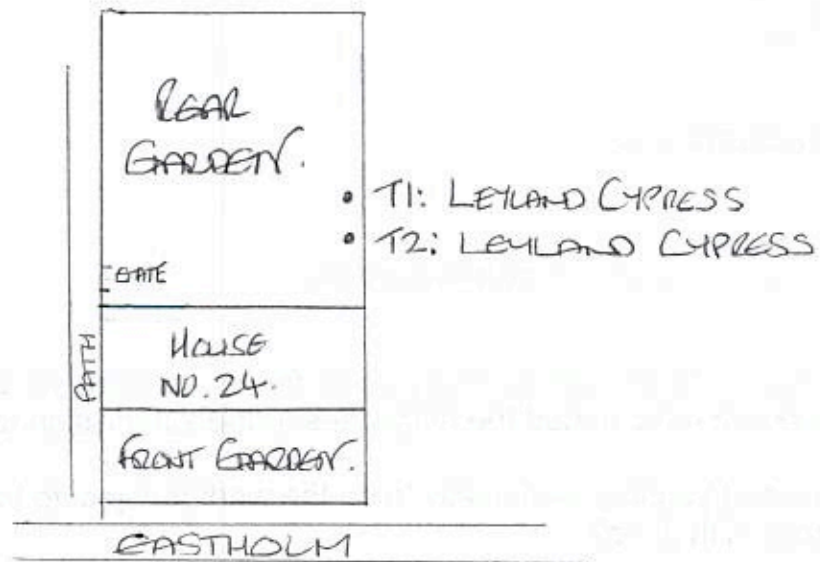 REAR
GARDEN.
T1: LEYLAND CYPRESS
T2: LEYLAND CYPRESS
GATE
PATH
HOUSE
NO. 24.
FRONT GARDEN.
EASTHOLM